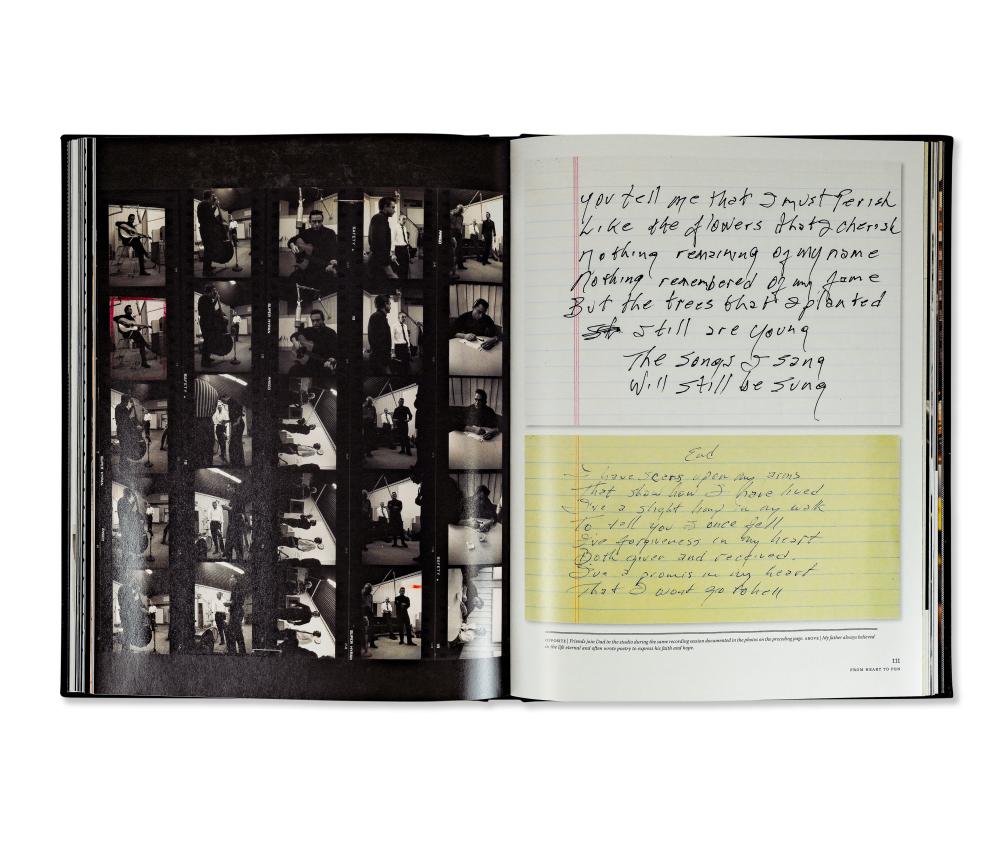 you tell me that I must Perish
Like the flowers that I cherish
Nothing remaining of my name
Nothing remembered of my fame
But the trees that I planted
still are young
The songs I sang
Will still be sung
End
I have scars upon my arms
That show how I have lived
I've a slight limp in my walk
To tell you I once fell
I've forgiveness in my heart
Both given and received.
I've a promis in my heart
That I wont go to hell
OPPOSITE | Friends join Dad in the studio during the same recording session documented in the photos on the preceding page. ABOVE | My father always believed
in the life eternal and often wrote poetry to express his faith and hope.
111
FROM HEART TO PEN